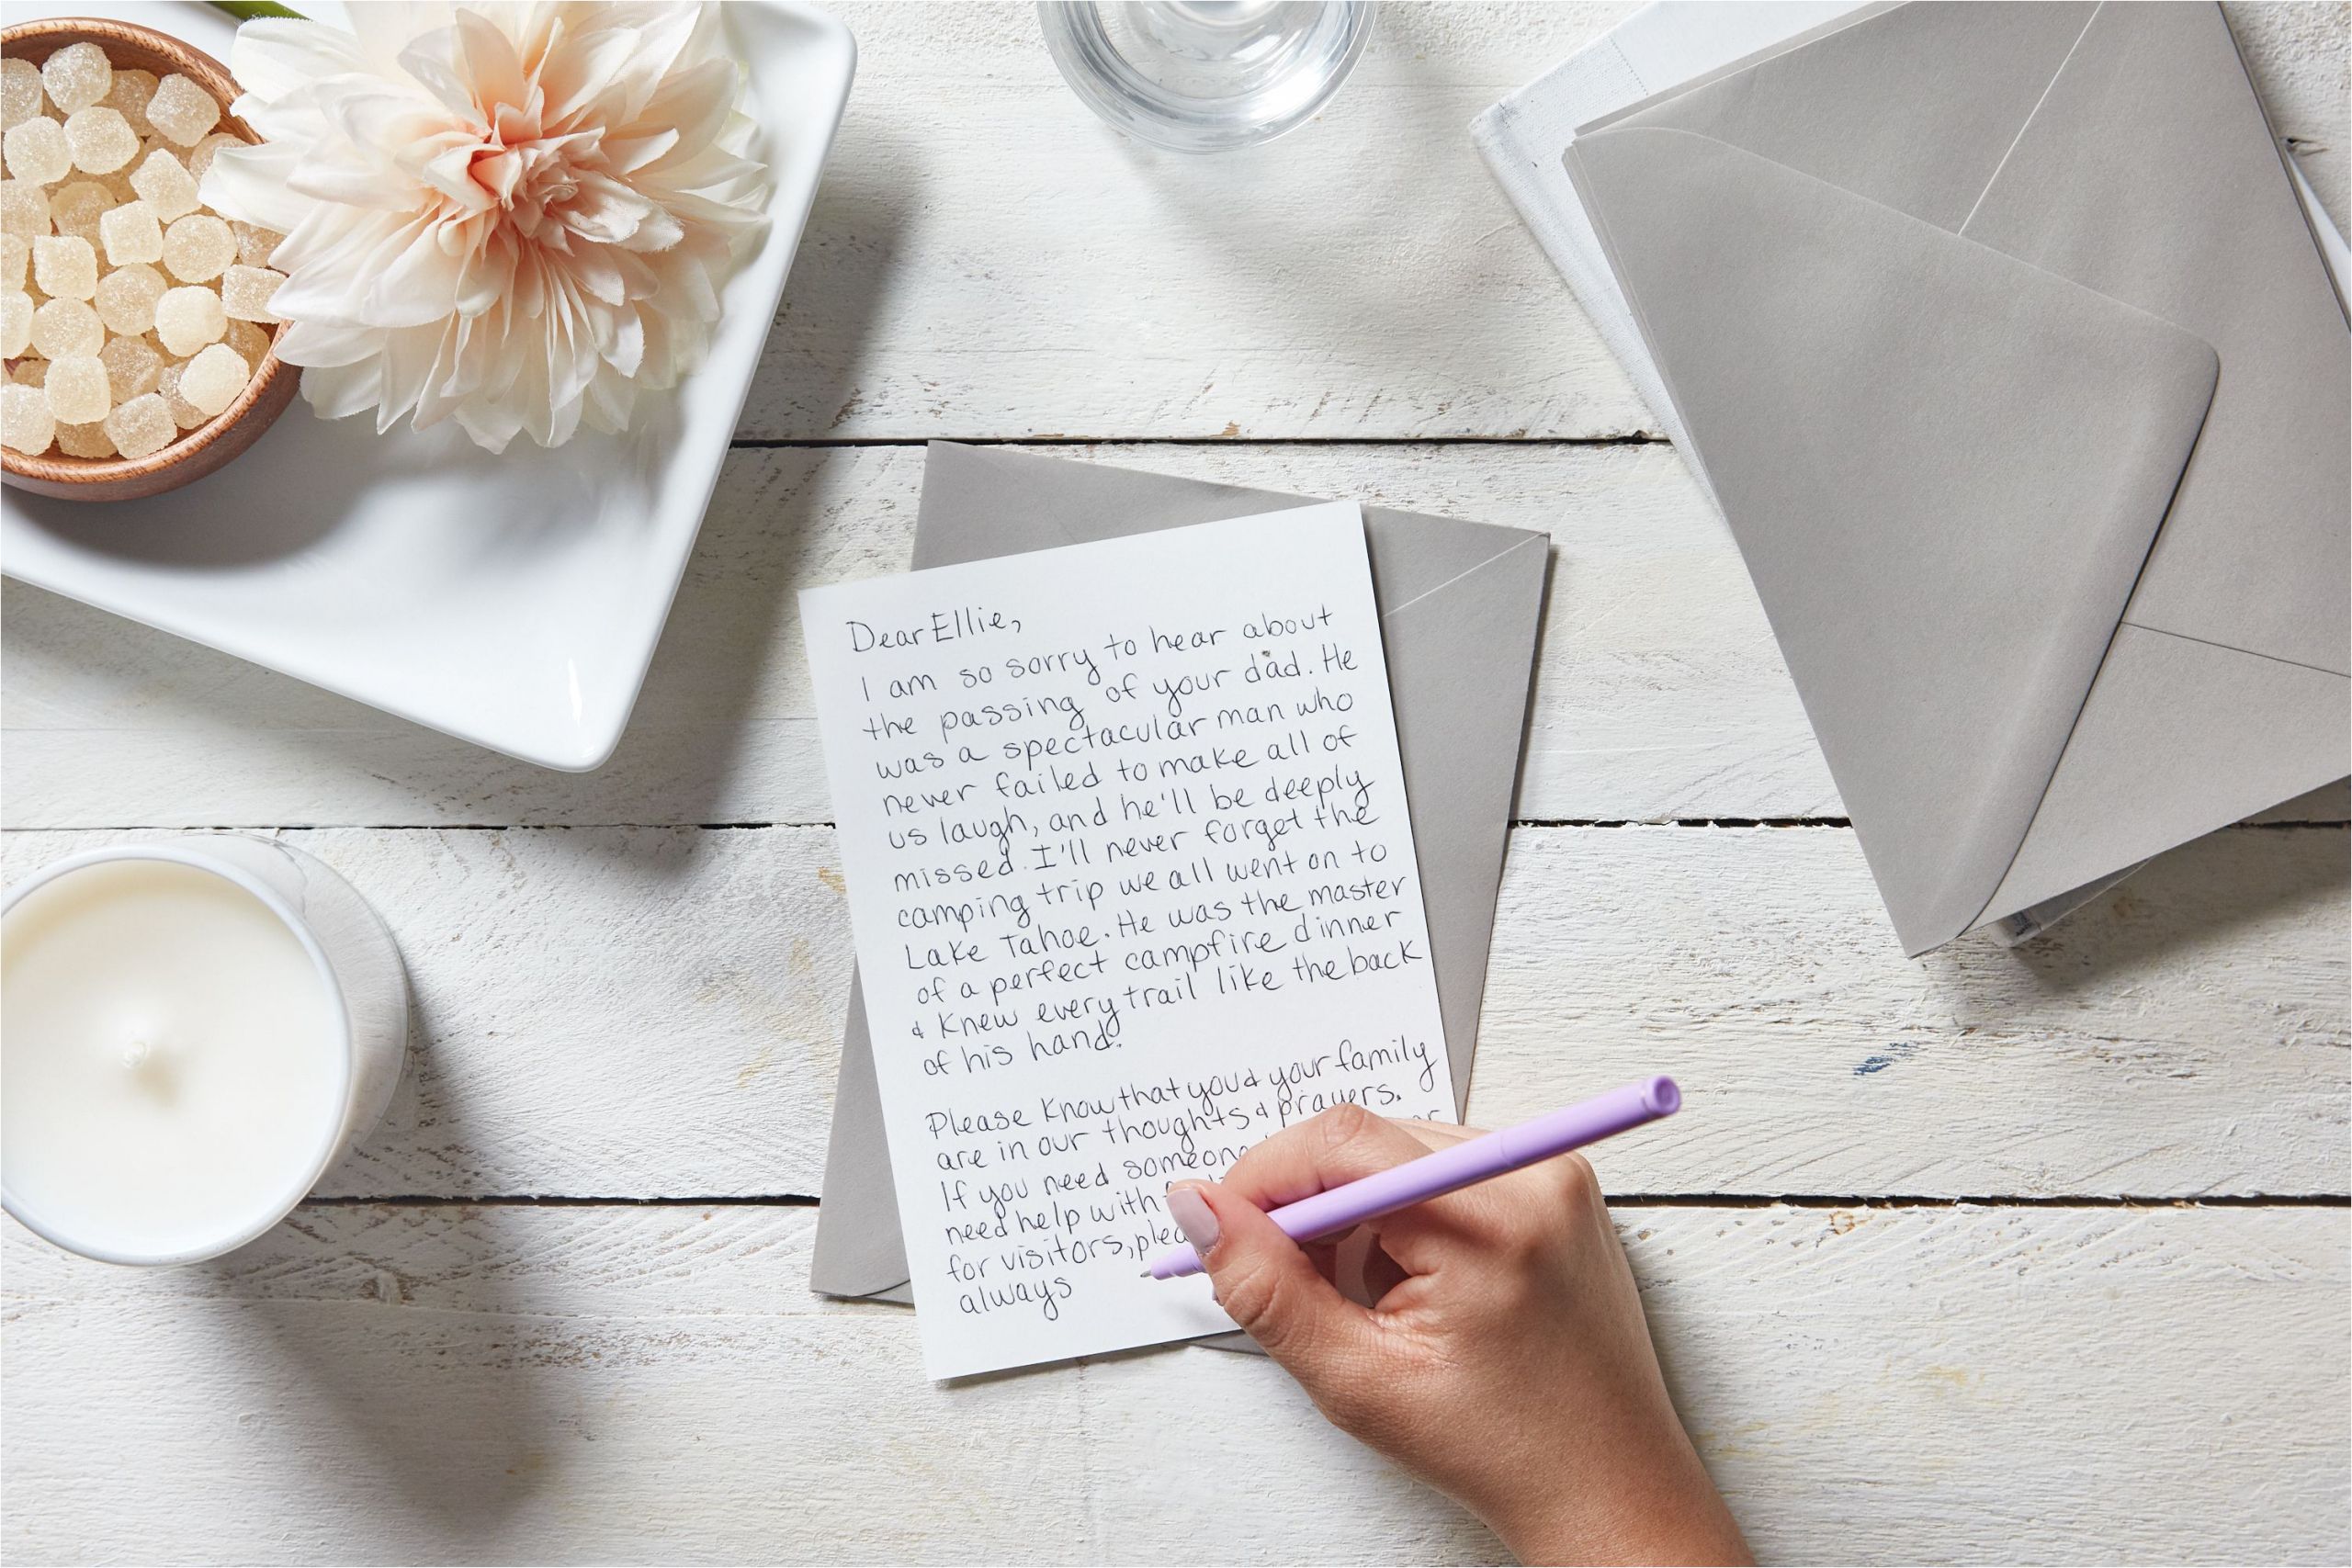 Dear Ellie,
I am so sorry to hear about
the passing of your dad. He
was a spectacular man who
never failed to make all of
us laugh, and he'll be deeply
missed. I'll never forget the
camping trip we all went on to
Lake Tahoe. He was the master
of a perfect campfire dinner
& knew every trail like the back
of his hand.
Please know that you & your family
are in our thoughts & prayers.
If you need
need help with
for visitors,
always